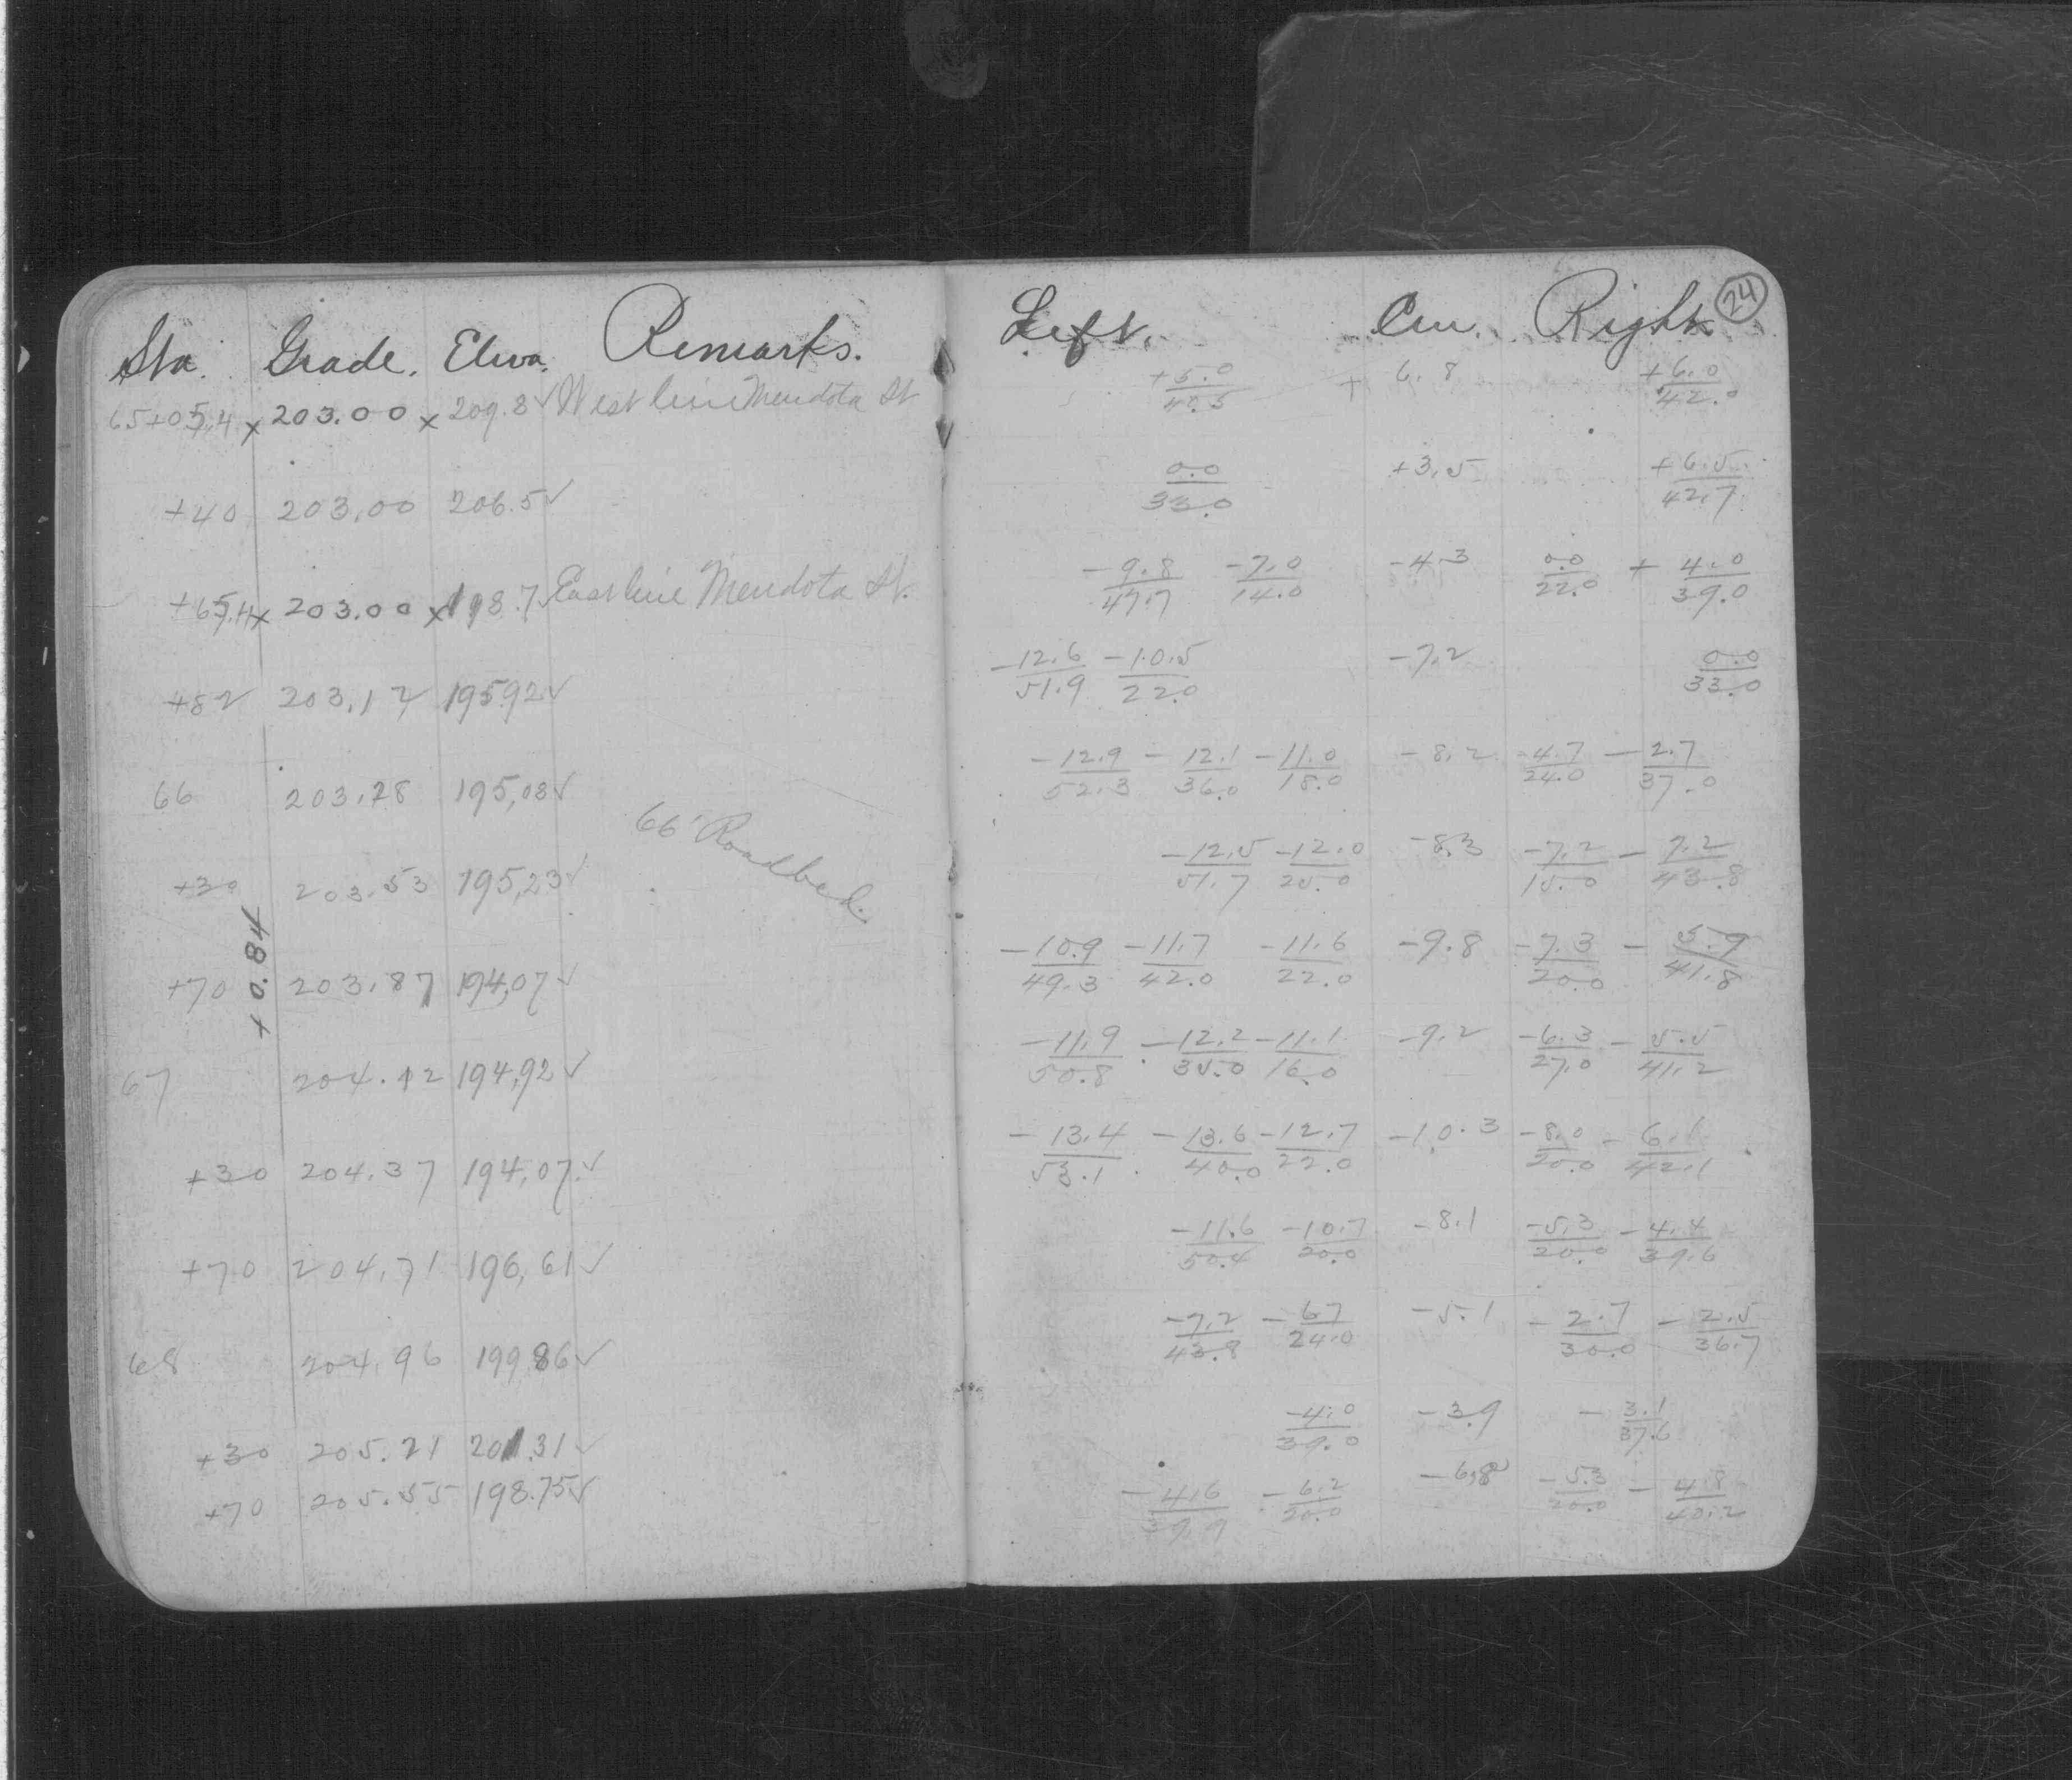 Sta. Grade. Eleva. Remarks. Left. Cen. Right. 24
65+05.4 x 203.00 x 209.8 ✓ West line Mendota St +5.0/40.5 + 6.8 +6.0/42.0
+40 203.00 206.5 ✓ 0.0/33.0 +3.5 +6.5/42.7
+65.4 x 203.00 x 198.7 ✓ East line Mendota St. -9.8/47.7 -7.0/14.0 -4.3 0.0/22.0 +4.0/39.0
+82 203.12 195.92 ✓ -12.6/51.9 -10.5/22.0 -7.2 0.0/33.0
66 203.28 195.08 ✓ -12.9/52.3 -12.1/36.0 -11.0/18.0 -8.2 -4.7/24.0 -2.7/37.0
66' Roadbed.
+30 203.53 195.23 ✓ -12.5/51.7 -12.0/25.0 -8.3 -7.2/15.0 -7.2/43.8
+0.84
+70 203.87 194.07 ✓ -10.9/49.3 -11.7/42.0 -11.6/22.0 -9.8 -7.3/20.0 -5.9/41.8
67 204.12 194.92 ✓ -11.9/50.8 -12.2/35.0 -11.1/16.0 -9.2 -6.3/27.0 -5.5/41.2
+30 204.37 194.07 ✓ -13.4/53.1 -13.6/40.0 -12.7/22.0 -10.3 -8.0/20.0 -6.1/42.1
+70 204.71 196.61 ✓ -11.6/50.4 -10.7/20.0 -8.1 -5.3/20.0 -4.4/39.6
68 204.96 199.86 ✓ -7.2/43.8 -6.7/24.0 -5.1 -2.7/30.0 -2.5/36.7
+30 205.21 201.31 ✓ -4.0/39.0 -3.9 -3.1/37.6
+70 205.55 198.75 ✓ -4.6/39.9 -6.2/20.0 -6.8 -5.3/20.0 -4.8/40.2